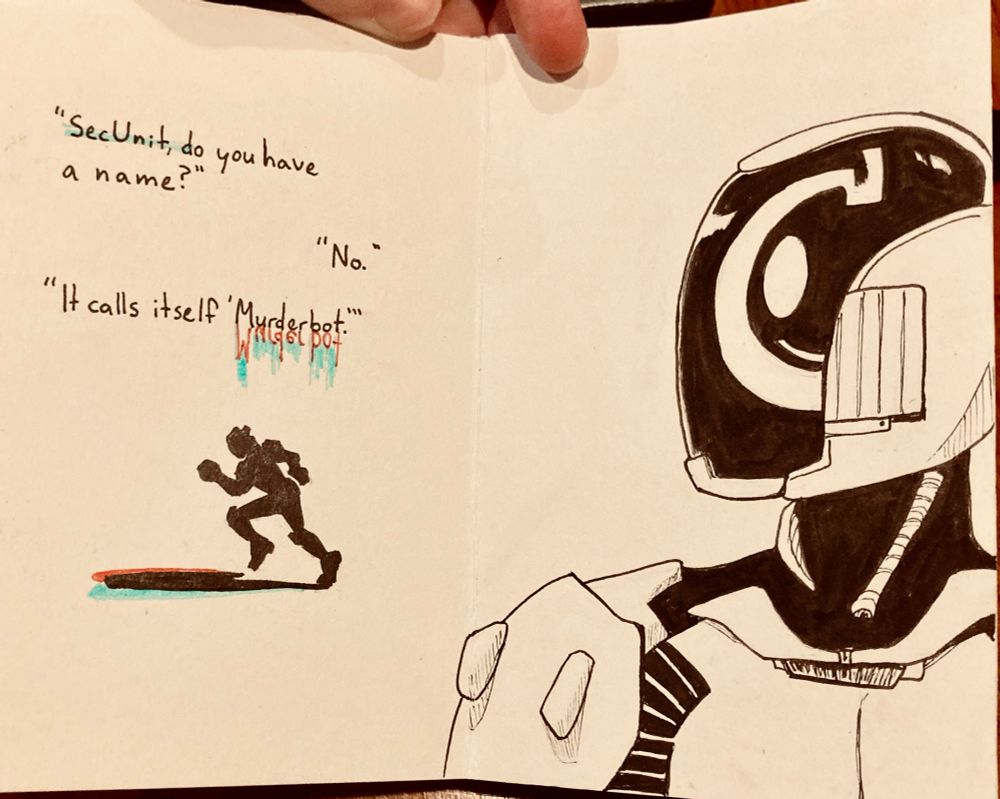 "SecUnit, do you have
a name?"
"No."
"It calls itself 'Murderbot.'"
Murderbot